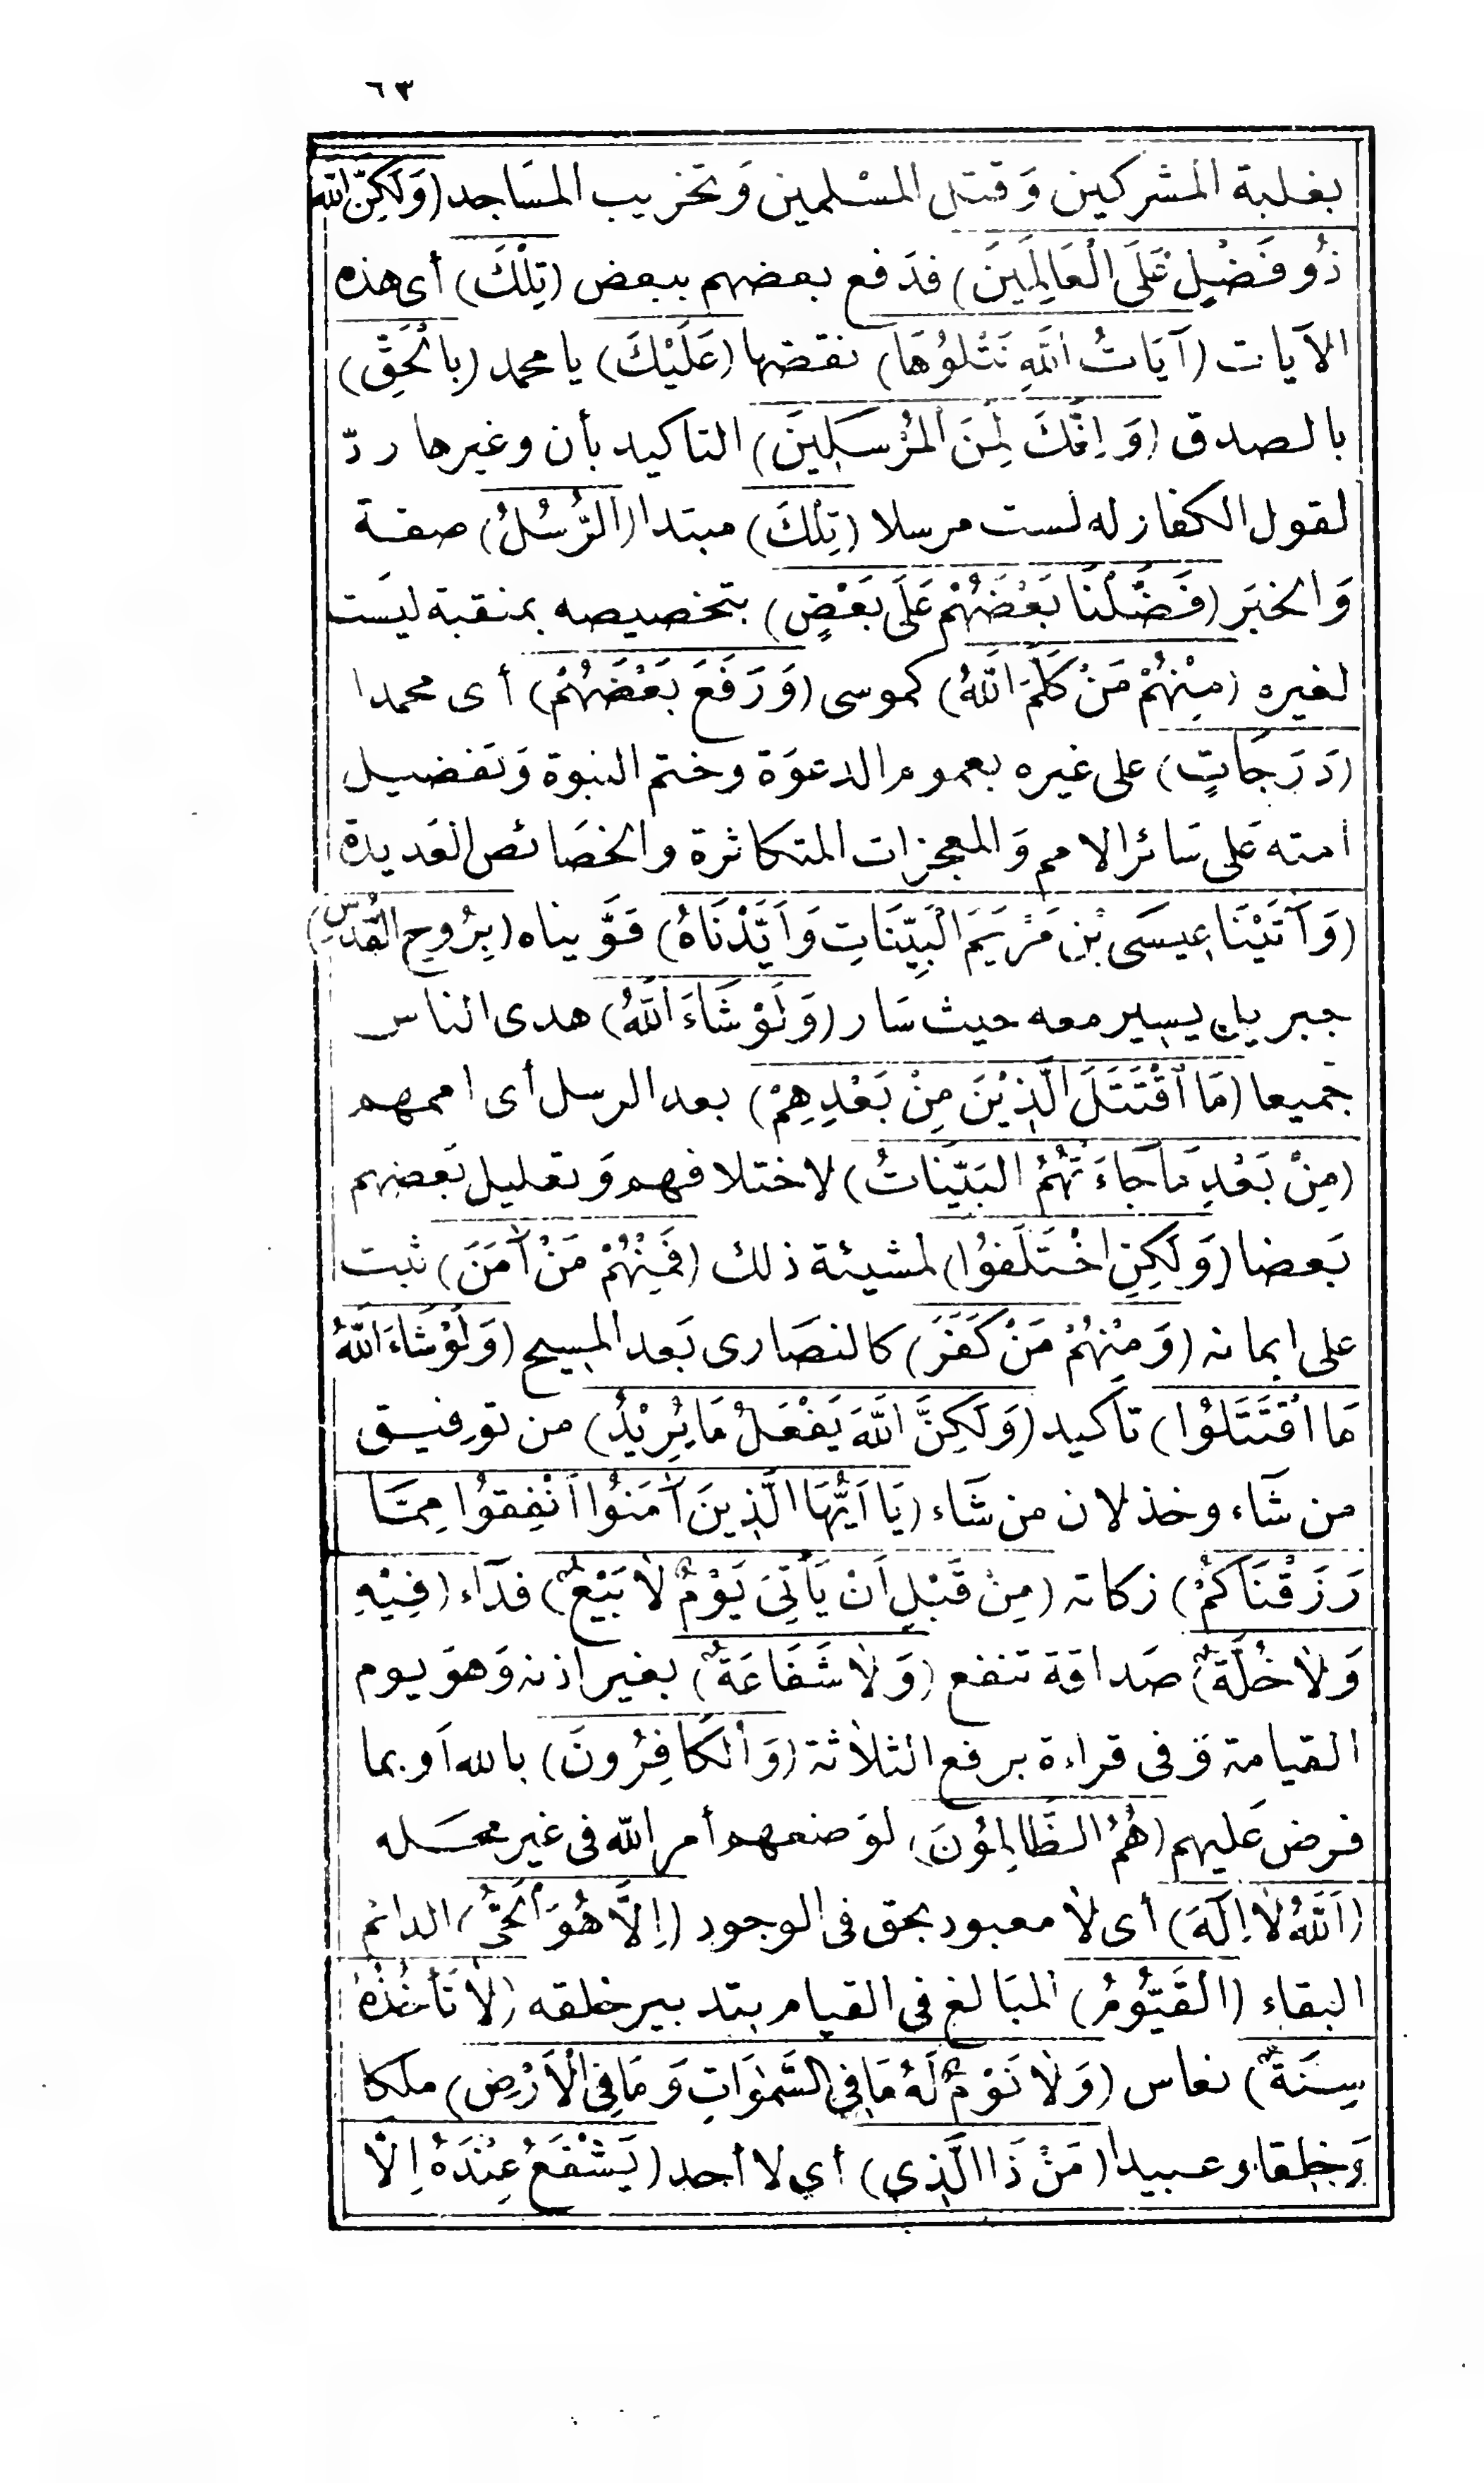 ٦٣
بغلبة المشركين وَقتل المسْلمين وَتخريب المسَاجد (وَلَكِنَّ اللهَ
ذُو فَضْلٍ عَلَى الْعَالَمِينَ) فدَفع بعضهم ببعض (تِلْكَ) أى هذه
الآيات (آيَاتُ اللَّهِ نَتْلُوُهَا) نقصّها (عَلَيْكَ) يا محمد (بِالْحَقِّ)
بالصدق (وَإِنَّكَ لَمِنَ الْمُرْسَلِينَ) التاكيد بأن وغيرها ردّ
لقول الكفار له لست مرسلا (تِلْكَ) مبتدا (الرُّسُلُ) صفة
وَالخبَر (فَضَّلْنَا بَعْضَهُمْ عَلَى بَعْضٍ) بتخصيصه بمنقبة ليسَت
لغيره (مِنْهُمْ مَنْ كَلَّمَ اللهُ) كموسى (وَرَفَعَ بَعْضَهُمْ) أى محمدا
(دَرَجَاتٍ) على غيره بعموم الدعوَة وختم النبوة وَتفضيل
امته عَلى سَائر الامم وَالمعجزات المتكاثرة والخصَائص العَديدة
(وَآتَيْنَا عِيسَى بْنَ مَرْيَمَ الْبَيِّنَاتِ وَاَيَّدْنَاهُ) قوَّيناه (بِرُوحِ القُدُسِ)
جبريل يسير معه حيث سَار (وَلَوْ شَاءَ اللهُ) هدى الناس
جميعا (مَا اقْتَتَلَ الَّذِيْنَ مِنْ بَعْدِهِمْ) بعد الرسل أى اممهم
(مِنْ بَعْدِ مَا جَاءَتْهُمُ البَيِّنَاتُ) لاختلافهم وَتعليل بَعضهم
بَعضا (وَلَكِنِ اخْتَلَفُوا) لمشيئة ذلك (فَمِنْهُمْ مَنْ آمَنَ) ثبت
على ايمانه (وَمِنْهُمْ مَنْ كَفَرَ) كالنصَارى بَعد المسيح (وَلَوْ شَاءَ اللهُ
مَا اقْتَتَلُوا) تأكيد (وَلَكِنَّ اللهَ يَفْعَلُ مَا يُرِيْدُ) من توفيق
من شَاء وخذلان من شَاء (يَا اَيُّهَا الَّذِينَ آمَنُوا أَنْفِقُوا مِمَّا
رَزَقْنَاكُمْ) زكاته (مِنْ قَبْلِ اَنْ يَأْتِىَ يَوْمٌ لاَ بَيْعٌ) فدَاء (فِيْهِ
وَلاَ خُلَّةٌ) صَداقة تنفع (وَلاَ شَفَاعَةٌ) بغير اذنه وَهوَ يوم
القيامة وَفى قراءة برفع الثلاثة (وَالْكَافِرُونَ) بالله اَو بما
فرض عَليهم (هُمُ الظَّالِمُوْنَ) لوَضعهم أمر الله فى غير محله
(اَللهُ لاَ اِلَهَ) أى لاَ معبود بحق فى الوجود (اِلاَّ هُوَ اَلْحَىُّ) الدائم
البقاء (القَيُّوْمُ) المبَالغ فى القيام بتدبير خلقه (لاَ تَأْخُذُهُ
سِنَةٌ) نعاس (وَلاَ نَوْمٌ لَهُ مَا فِي السَّمَوَاتِ وَمَا فِي الْاَرْضِ) ملكا
وَخلقا وعبيدا (مَنْ ذَا الَّذِي) أي لا أحد (يَشْفَعُ عِنْدَهُ اِلاَّ